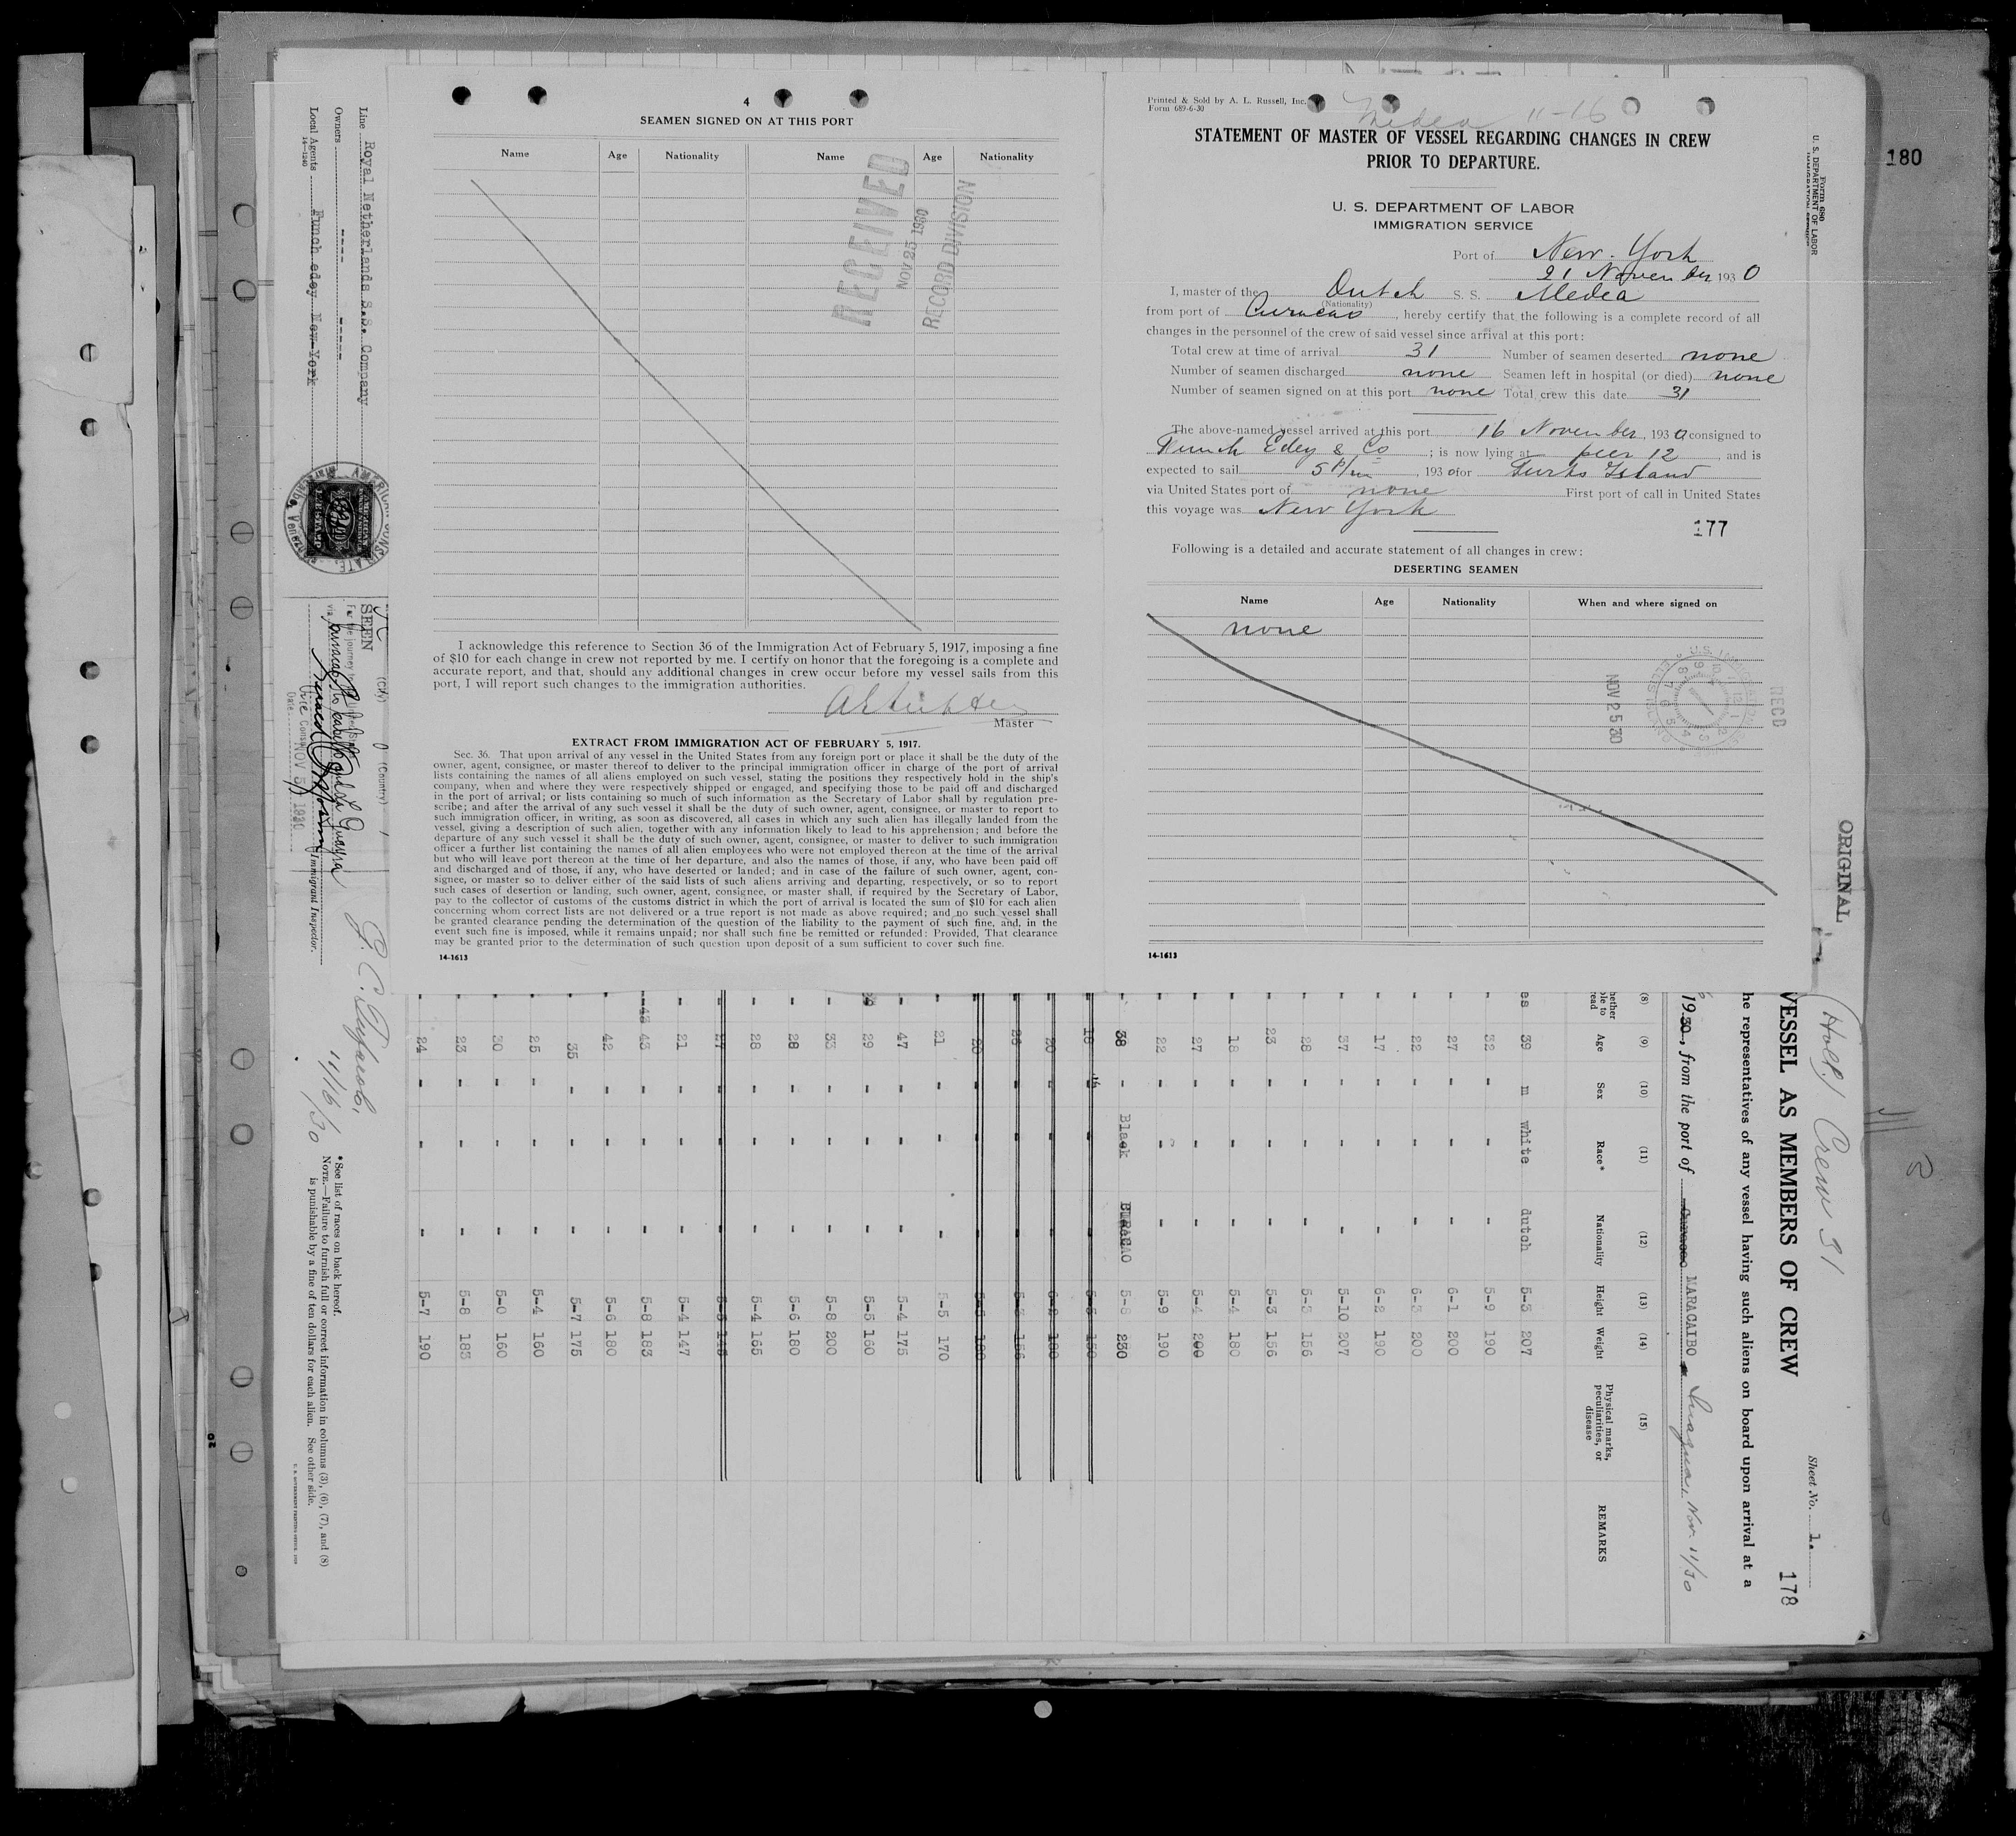 4
SEAMEN SIGNED ON AT THIS PORT
Name Age Nationality Name Age Nationality
RECEIVED
NOV 25 1930
RECORD DIVISION
I acknowledge this reference to Section 36 of the Immigration Act of February 5, 1917, imposing a fine
of $10 for each change in crew not reported by me. I certify on honor that the foregoing is a complete and
accurate report, and that, should any additional changes in crew occur before my vessel sails from this
port, I will report such changes to the immigration authorities.
Master
EXTRACT FROM IMMIGRATION ACT OF FEBRUARY 5, 1917.
Sec. 36. That upon arrival of any vessel in the United States from any foreign port or place it shall be the duty of the
owner, agent, consignee, or master thereof to deliver to the principal immigration officer in charge of the port of arrival
lists containing the names of all aliens employed on such vessel, stating the positions they respectively hold in the ship's
company, when and where they were respectively shipped or engaged, and specifying those to be paid off and discharged
in the port of arrival; or lists containing so much of such information as the Secretary of Labor shall by regulation pre-
scribe; and after the arrival of any such vessel it shall be the duty of such owner, agent, consignee, or master to report to
such immigration officer, in writing, as soon as discovered, all cases in which any such alien has illegally landed from the
vessel, giving a description of such alien, together with any information likely to lead to his apprehension; and before the
departure of any such vessel it shall be the duty of such owner, agent, consignee, or master to deliver to such immigration
officer a further list containing the names of all alien employees who were not employed thereon at the time of the arrival
but who will leave port thereon at the time of her departure, and also the names of those, if any, who have been paid off
and discharged and of those, if any, who have deserted or landed; and in case of the failure of such owner, agent, con-
signee, or master so to deliver either of the said lists of such aliens arriving and departing, respectively, or so to report
such cases of desertion or landing, such owner, agent, consignee, or master shall, if required by the Secretary of Labor,
pay to the collector of customs of the customs district in which the port of arrival is located the sum of $10 for each alien
concerning whom correct lists are not delivered or a true report is not made as above required; and no such vessel shall
be granted clearance pending the determination of the question of the liability to the payment of such fine, and, in the
event such fine is imposed, while it remains unpaid; nor shall such fine be remitted or refunded: Provided, That clearance
may be granted prior to the determination of such question upon deposit of a sum sufficient to cover such fine.
14-1613
Printed & Sold by A. L. Russell, Inc.
Form 689-6-30
Medea 11-16
STATEMENT OF MASTER OF VESSEL REGARDING CHANGES IN CREW
PRIOR TO DEPARTURE.
U. S. DEPARTMENT OF LABOR
IMMIGRATION SERVICE
Port of New York
21 November 1930
I, master of the Dutch S. S. Medea
(Nationality)
from port of Curacao, hereby certify that the following is a complete record of all
changes in the personnel of the crew of said vessel since arrival at this port:
Total crew at time of arrival 31 Number of seamen deserted none
Number of seamen discharged none Seamen left in hospital (or died) none
Number of seamen signed on at this port none Total crew this date 31
The above-named vessel arrived at this port 16 November, 1930 consigned to
Funch Edey & Co; is now lying at pier 12, and is
expected to sail 5 P/m, 1930 for Turks Island
via United States port of none First port of call in United States
this voyage was New York
177
Following is a detailed and accurate statement of all changes in crew:
DESERTING SEAMEN
Name Age Nationality When and where signed on
none
NOV 25 30
REC'D
14-1613
180
Form 680
U. S. DEPARTMENT OF LABOR
IMMIGRATION SERVICE
ORIGINAL
(Holl) Crew 31
Sheet No. 1.
178
VESSEL AS MEMBERS OF CREW
he representatives of any vessel having such aliens on board upon arrival at a
1930, from the port of Curacao MARACAIBO Nov. 11/30
(8) (9) (10) (11) (12) (13) (14) (15)
Age Sex Race* Nationality Height Weight Physical marks, peculiarities, or disease REMARKS
es 39 m white dutch 5-3 207
32 - - - 5-9 190
27 - - - 6-1 200
22 - - - 6-3 200
17 - - - 6-2 190
37 - - - 5-10 207
28 - - - 5-3 156
23 - - - 5-3 156
18 - - - 5-4 180
27 - - - 5-4 200
22 - - - 5-9 190
38 - Black CURACAO 5-8 230
18 - - - 5-6 150
20 - - - 180
26 - - - 156
20 180
- 21 - - - 5-5 170
- 47 - - - 5-4 175
29 - - - 5-5 160
- 33 - - - 5-8 200
- 28 - - - 5-6 180
- 28 - - - 5-4 165
- 27 - - - 145
- 21 - - - 5-4 147
43 - - - 5-8 183
- 42 - - - 5-6 180
- 35 - - - 5-7 175
- 25 - - - 5-4 160
- 30 - - - 5-0 160
- 23 - - - 5-8 183
- 24 - - - 5-7 190
Line Royal Netherlands S.S. Company
Owners ----
Local Agents Funch edey New-York
14-1240
SEEN
(City) (Country)
Vice Consul
Date NOV 5 1930
Immigrant Inspector.
11/16/30
*See list of races on back hereof.
NOTE.—Failure to furnish full or correct information in columns (3), (6), (7), and (8)
is punishable by a fine of ten dollars for each alien. See other side.
20